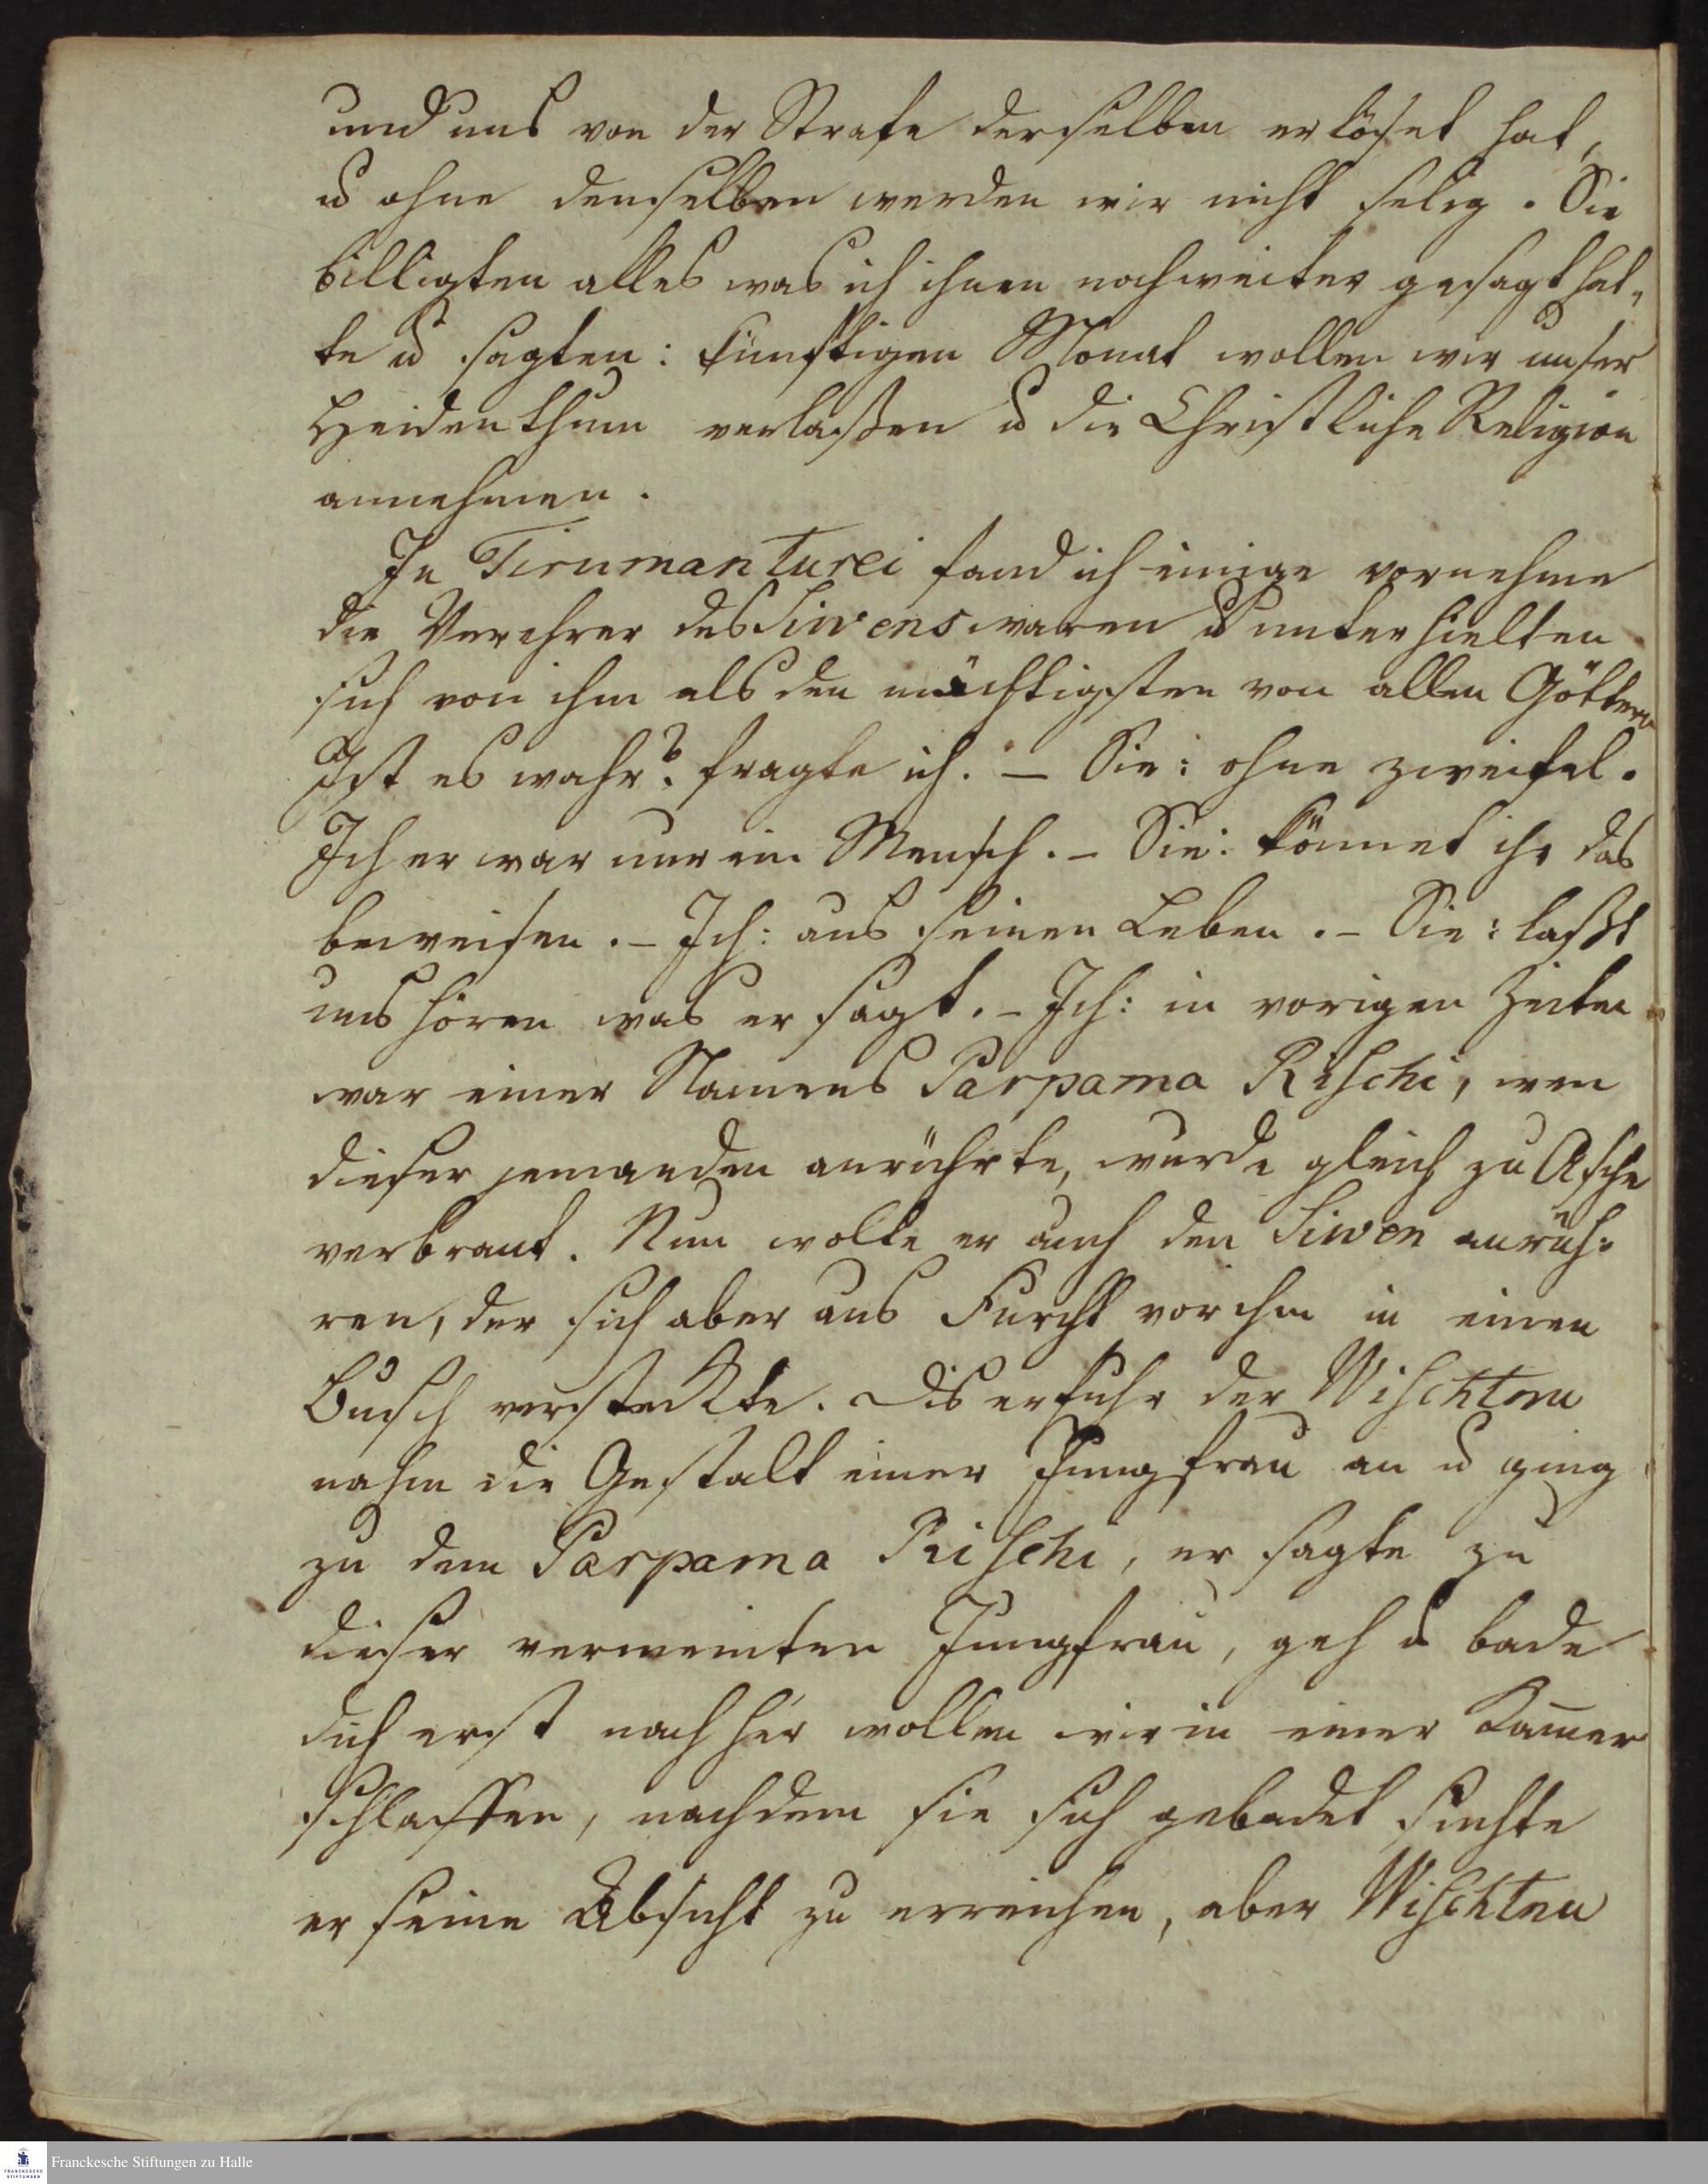 und uns von der Strafe derselben erlöset hat,
u ohne denselben werden wir nicht selig. Sie
billigten alles was ich ihnen noch weiter gesagt hat„
te u sagten: künftigen Monat wollen wir unser
Heidenthum verlaßen u die Christliche Religion
annehmen.
In Tirumanturei fand ich einige vornehme
die Verehrer des Siwens waren u unterhielten
sich von ihm als den mächtigsten von allen Göttern
Ist es wahr? fragte ich. – Sie: ohne zweifel.
Ich er war nur ein Mensch. – Sie: könnet ihr das
beweisen. – Ich: aus seinen Leben. – Sie: laßt
uns hören was er sagt. – Ich: in vorigen Zeiten
war einer Namens Parpama Rischi, wen
dieser jemanden anrührte, wurde gleich zu Asche
verbrant. Nun wolte er auch den Siwen anrüh:
ren, der sich aber aus Furcht vor ihm in einen
Busch versteckte. Dis erfuhr der Wischtnu
nahm die Gestalt einer Jungfrau an u ging
zu dem Parpama Rischi, er sagte zu
dieser vermeinten Jungfrau, geh u bade
dich erst nachher wollen wir in einer Kamer
schlaffen, nachdem sie sich gebadet suchte
er seine Absicht zu erreichen, aber Wischtnu
Franckesche Stiftungen zu Halle